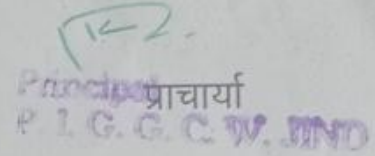 Principal
प्राचार्या
P. I. G. G. C. W. JIND